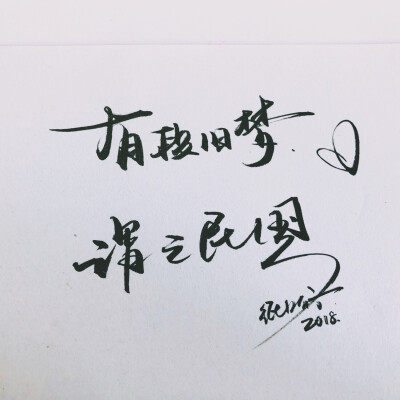 有段旧梦.
谓之民国
2018.